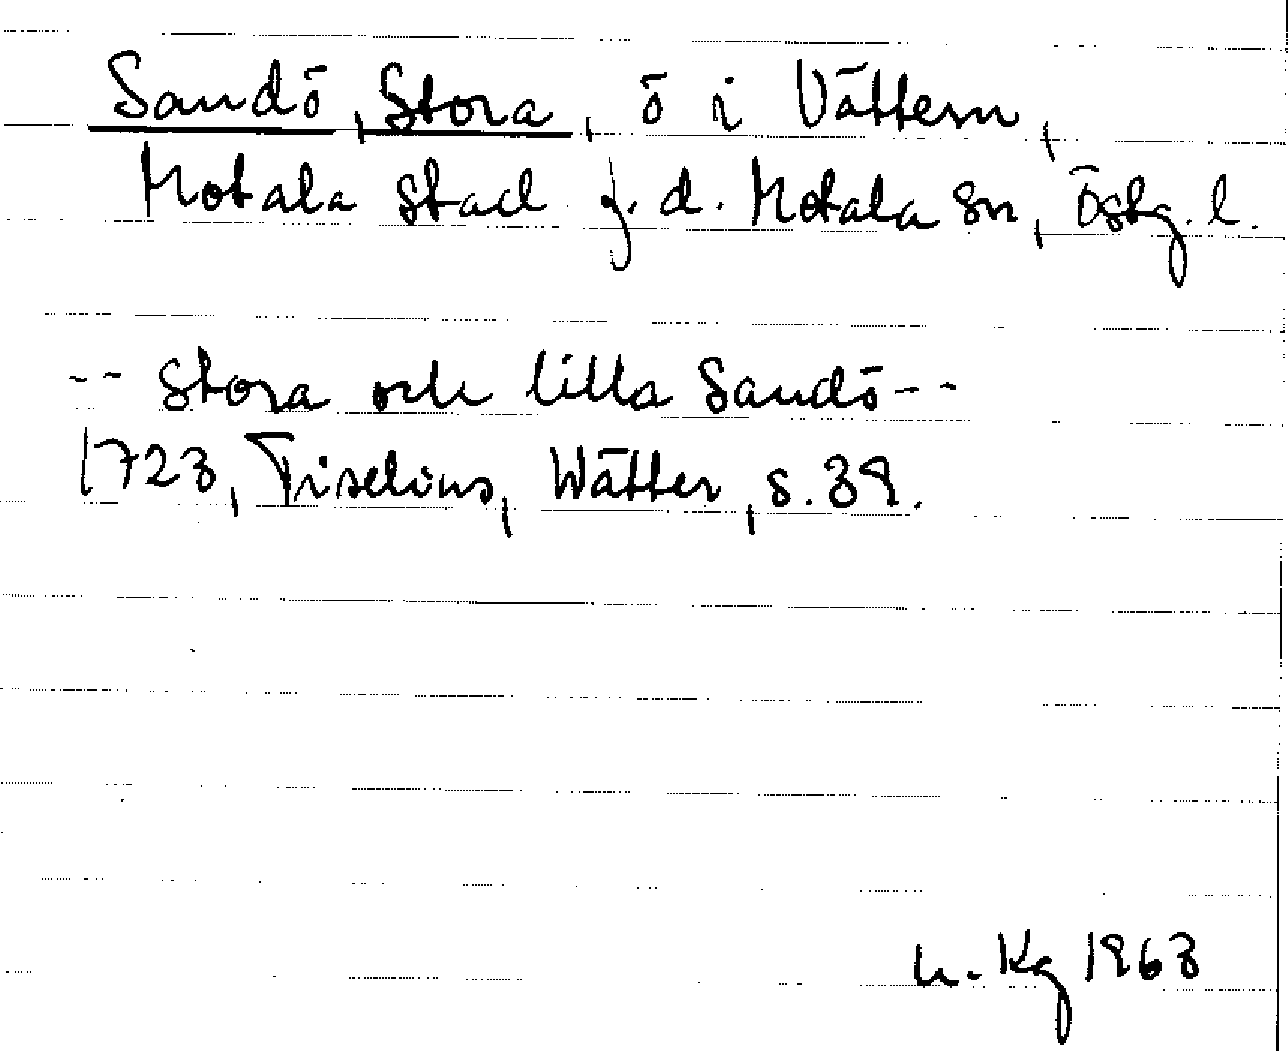 Sandö, Stora, ö i Vättern,
Motala stad f.d. Motala sn, Östg. l.
-- Stora och lilla Sandö --
1723, Tiselius, Wätter, s. 39.
h. Kg 1963